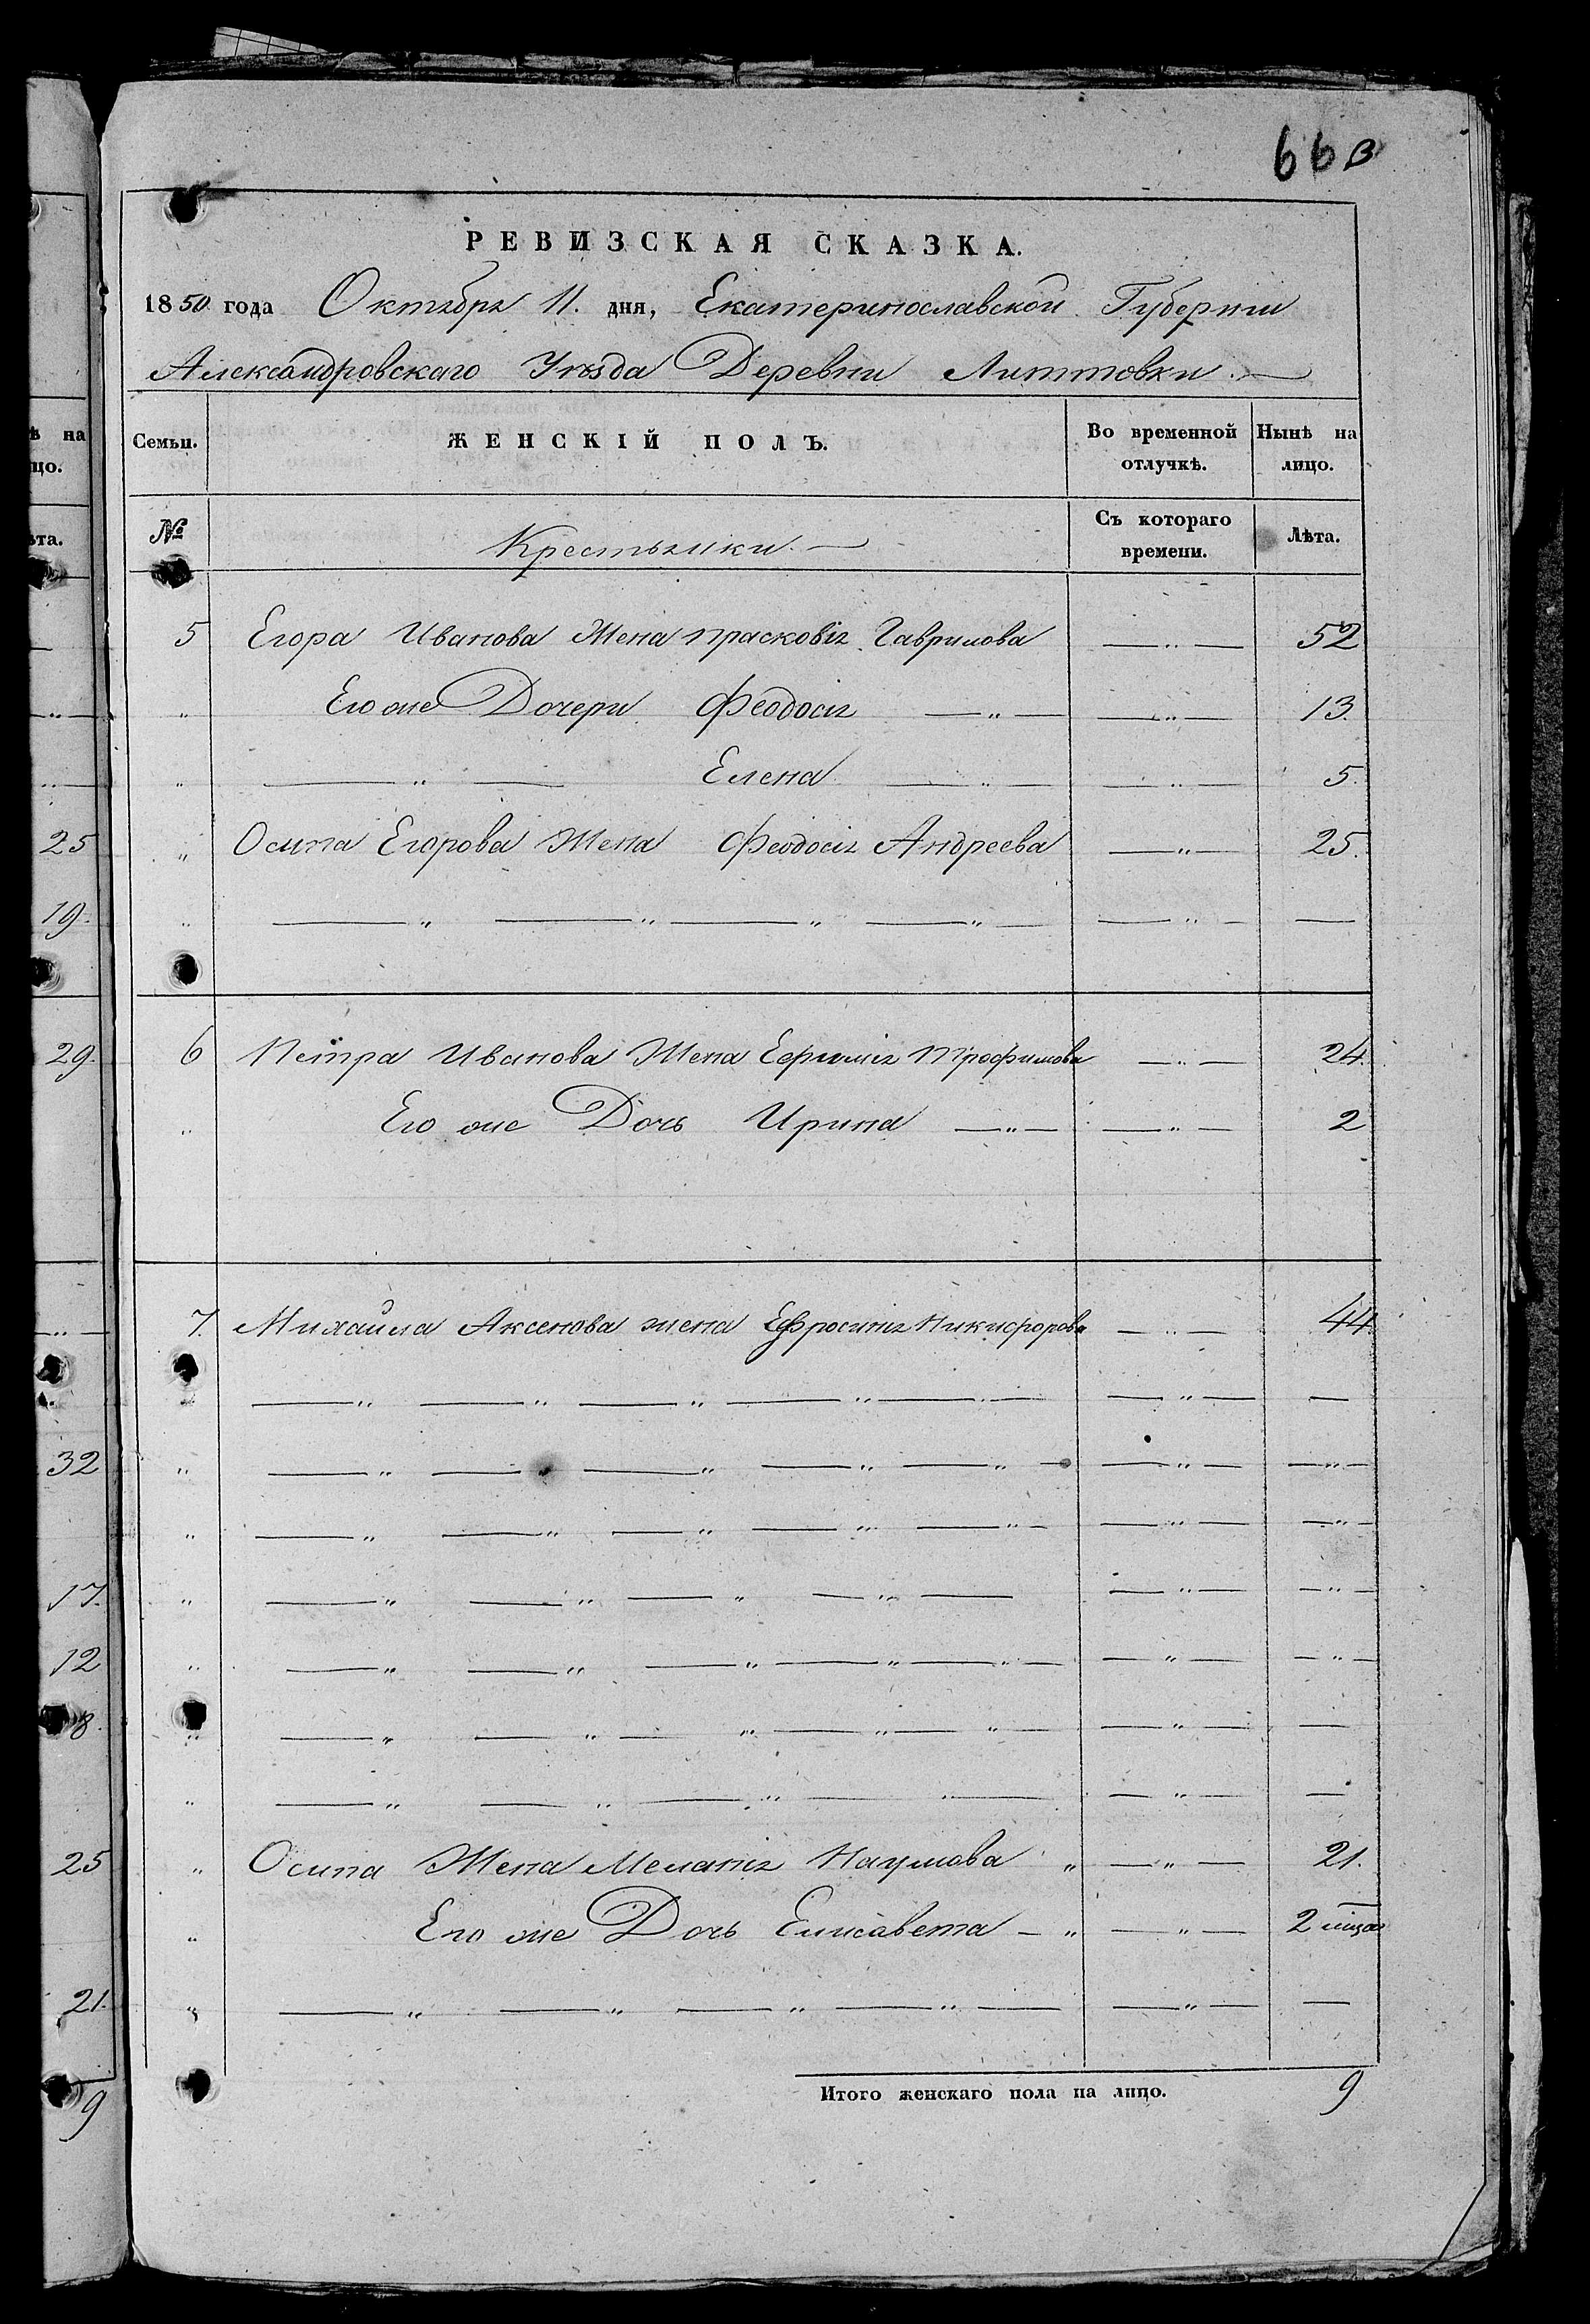 66 в
РЕВИЗСКАЯ СКАЗКА.
1850 года Октября 11. дня, Екатеринославской Губерніи
Александровскаго Уѣзда Деревни Литтовки. —
Семьи. ЖЕНСКІЙ ПОЛЪ. Во временной отлучкѣ. Нынѣ на лицо.
№ Крестьянки. — Съ котораго времени. Лѣта.
5 Егора Иванова Жена Прасковія Гаврилова — „ — 52
„ Его же Дочери Феодосія — „ — — „ — 13.
„ — „ — Елена — „ — — „ — 5.
„ Осипа Егорова Жена Феодосія Андреева — „ — 25.
„ — „ — „ — „ — „ — — „ — —
6 Петра Иванова Жена Ефимія Трофимова — „ — 24.
„ Его же Дочь Ирина — „ — — „ — 2
7. Михайла Аксенова жена Ефросинія Никифорова — „ — 44
„ — „ — „ — „ — „ — — „ — —
„ — „ — „ — „ — „ — „ — — „ — — „ —
„ — „ — „ — „ — „ — „ — — „ — — „ —
„ — „ — „ — „ — „ — — „ — — „ —
„ — „ — „ — „ — „ — „ — — „ — — „ —
„ — „ — „ — „ — „ — „ — — „ — —
„ — „ — „ — „ — „ — — „ — —
„ Осипа Жена Меланія Наумова „ — „ — 21.
„ Его же Дочь Елисавета — „ — „ — 2 мѣсяц
„ — „ — „ — „ — „ — — „ — —
Итого женскаго пола на лицо. 9
ѣ на
цо.
ѣта.
25
19.
29.
32
17.
12
8.
25
21.
9